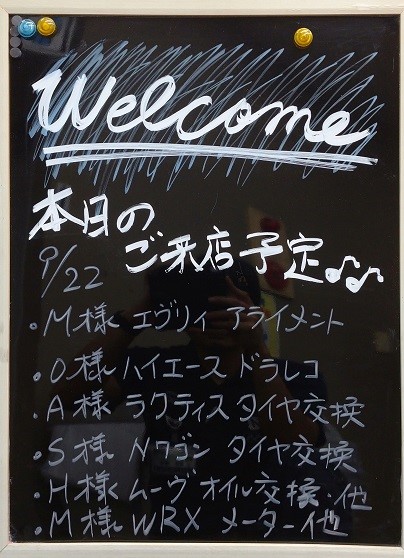 Welcome
本日の
ご来店予定♪♪
9/22
・M様 エヴリィ アライメント
・O様 ハイエース ドラレコ
・A様 ラクティス タイヤ交換
・S様 Nワゴン タイヤ交換
・H様 ムーヴ オイル交換・他
・M様 WRX メーター他